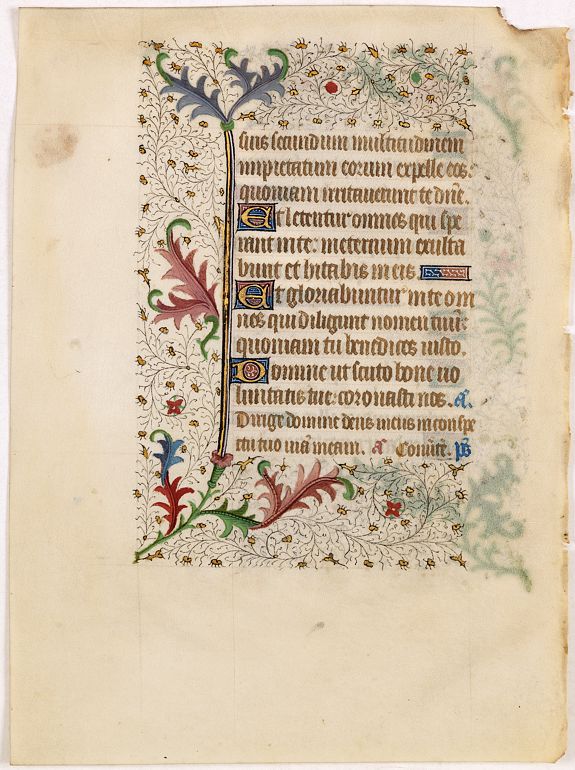 suis secundum multitudinem
impietatum eorum expelle eos.
quoniam irritaverunt te dñe.
Et letentur omnes qui spe
rant in te: in eternum exulta
bunt et hitabis in eis.
Et gloriabuntur in te om
nes qui diligunt nomen tuum:
quoniam tu benedices iusto.
Domine ut scuto bone vo
luntatis tue: coronasti nos. a.
Dirige domine deus meus in conspe
ctu tuo viã meam. a Convite. ps